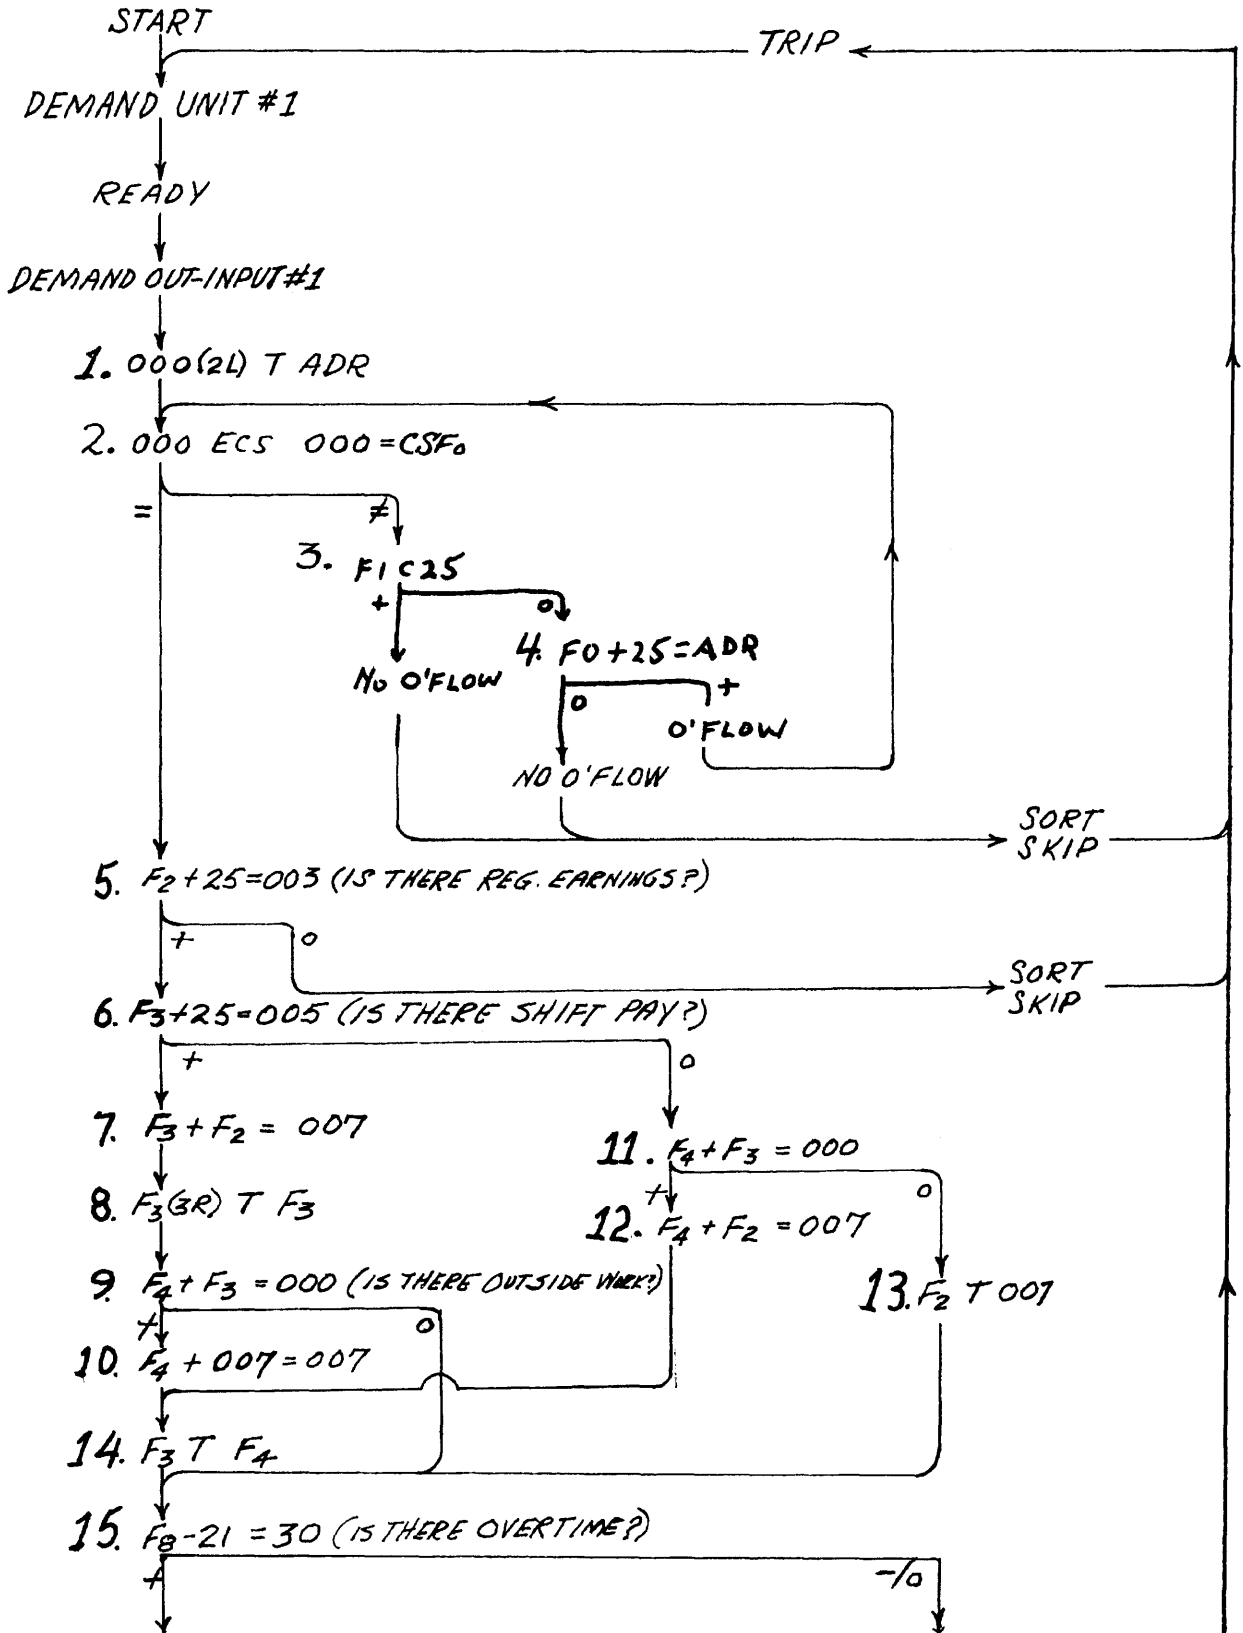 START
TRIP
DEMAND UNIT #1
READY
DEMAND OUT-INPUT #1
1. 000(2L) T ADR
2. 000 ECS 000=CSF0
= ≠
3. F1 C25
+ 0
4. F0+25=ADR
NO O'FLOW
0 +
O'FLOW
NO O'FLOW
SORT
SKIP
5. F2+25=003 (IS THERE REG. EARNINGS?)
+ 0
SORT
SKIP
6. F3+25=005 (IS THERE SHIFT PAY?)
+ 0
7. F3+F2= 007
11. F4+F3=000
+ 0
8. F3(3R) T F3
12. F4+F2=007
9. F4+F3=000 (IS THERE OUTSIDE WORK?)
13. F2 T 007
+ 0
10. F4+007=007
14. F3 T F4
15. F8-21=30 (IS THERE OVERTIME?)
+ -/0